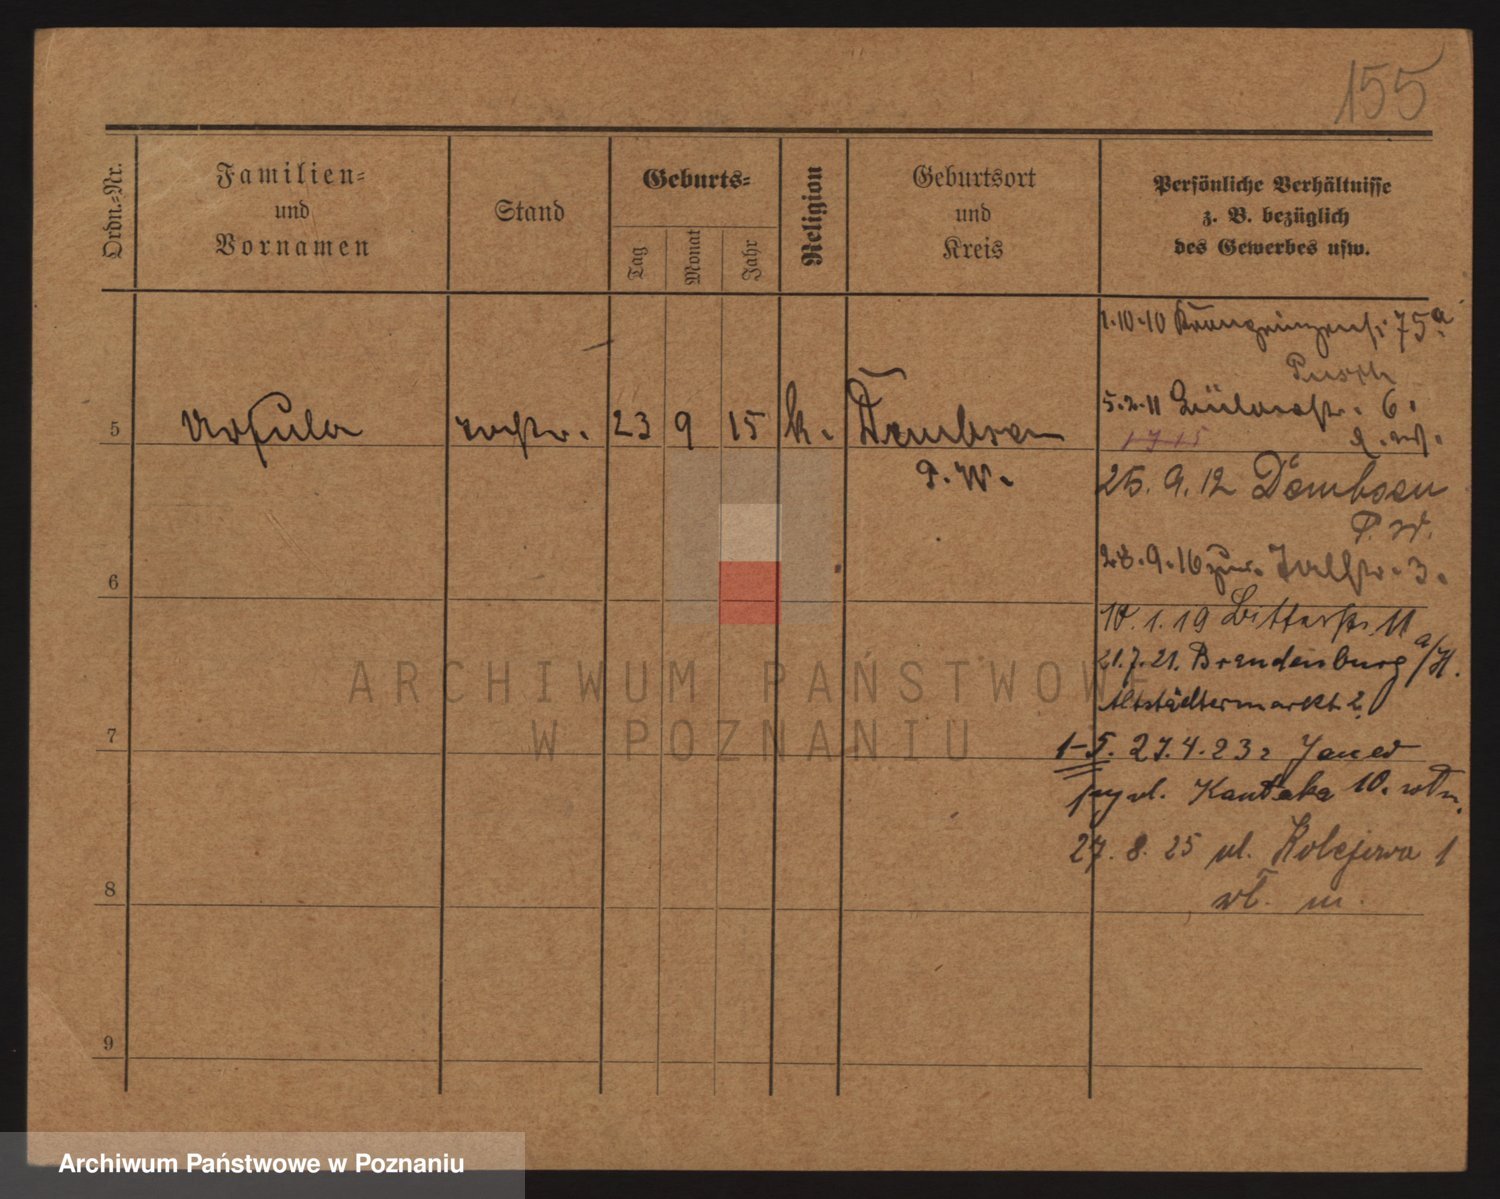 155
Ordn.-Nr.
Familien-
und
Vornamen
Stand
Geburts-
Tag
Monat
Jahr
Religion
Geburtsort
und
Kreis
Persönliche Verhältnisse
z. B. bezüglich
des Gewerbes usw.
1.10.10 Kronprinzenstr 75a
5.2.11 6.
5 Ursula 23 9 15 k. Dembsen
P. W.
25. 9. 12 Dembsen
P. W.
28.9.16 Talstr. 3.
6
10.1.19 Bitterstr. 11
21.7.21. Brandenburg a/H.
Altstädtermarkt 2
7
1-5. 27.4.23
Kantaka 10.
27. 8. 25 ul. Kolejowa 1
wł. m.
8
9
ARCHIWUM PAŃSTWOWE
W POZNANIU
Archiwum Państwowe w Poznaniu